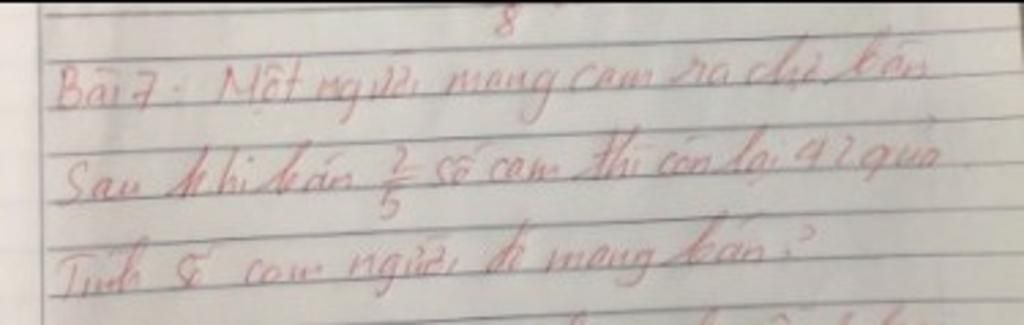 8
Bài 7: Một người mang cam ra chợ bán
Sau khi bán 2/5 số cam thì còn lại 42 quả
Tính số cam người đó mang bán?